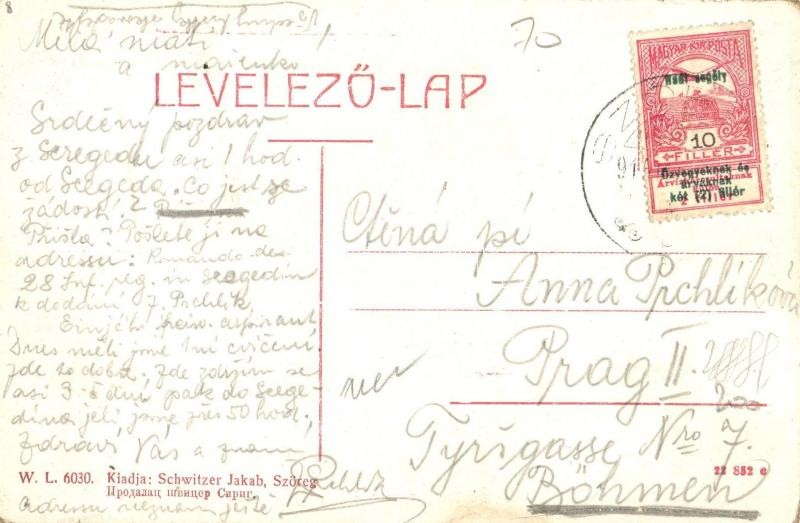 8
70
Milá máti
a
LEVELEZŐ-LAP
Srdečný pozdrav
z Szegedu asi 1 hod.
od Szegeda. Co jest se
žádostí?
Přišla? Pošlete ji na
adressu: Komando des
28 Inf. reg. in Szegedin
k dodání J. Prchlík,
Einjähr. aspirant
Dnes měli jsme 1ní cvičení.
jde to dobře. Zde zdržím se
asi 3-5 dní, pak do Szege-
dina, jeli jsme přes 50 hod.
Zdraví Vás a
J. Prchlík
adressu neznám ještě
MAGYAR KIR. POSTA
Hadi segély
10
FILLÉR
Özvegyeknek és
árváknak
két (2) fillér
Ctěná pí
Anna Prchlíková
Prag II.
200
Tyršgasse Nro 7.
Böhmen
W. L. 6030. Kiadja: Schwitzer Jakab, Szöreg
Продалац швицер Сириг.
22 852 c